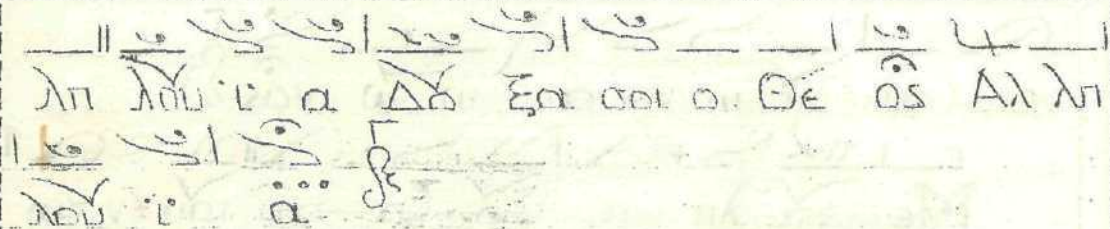 λη λου ϊ α Δο ξα σοι ο Θε ος Αλ λη
λου ϊ α